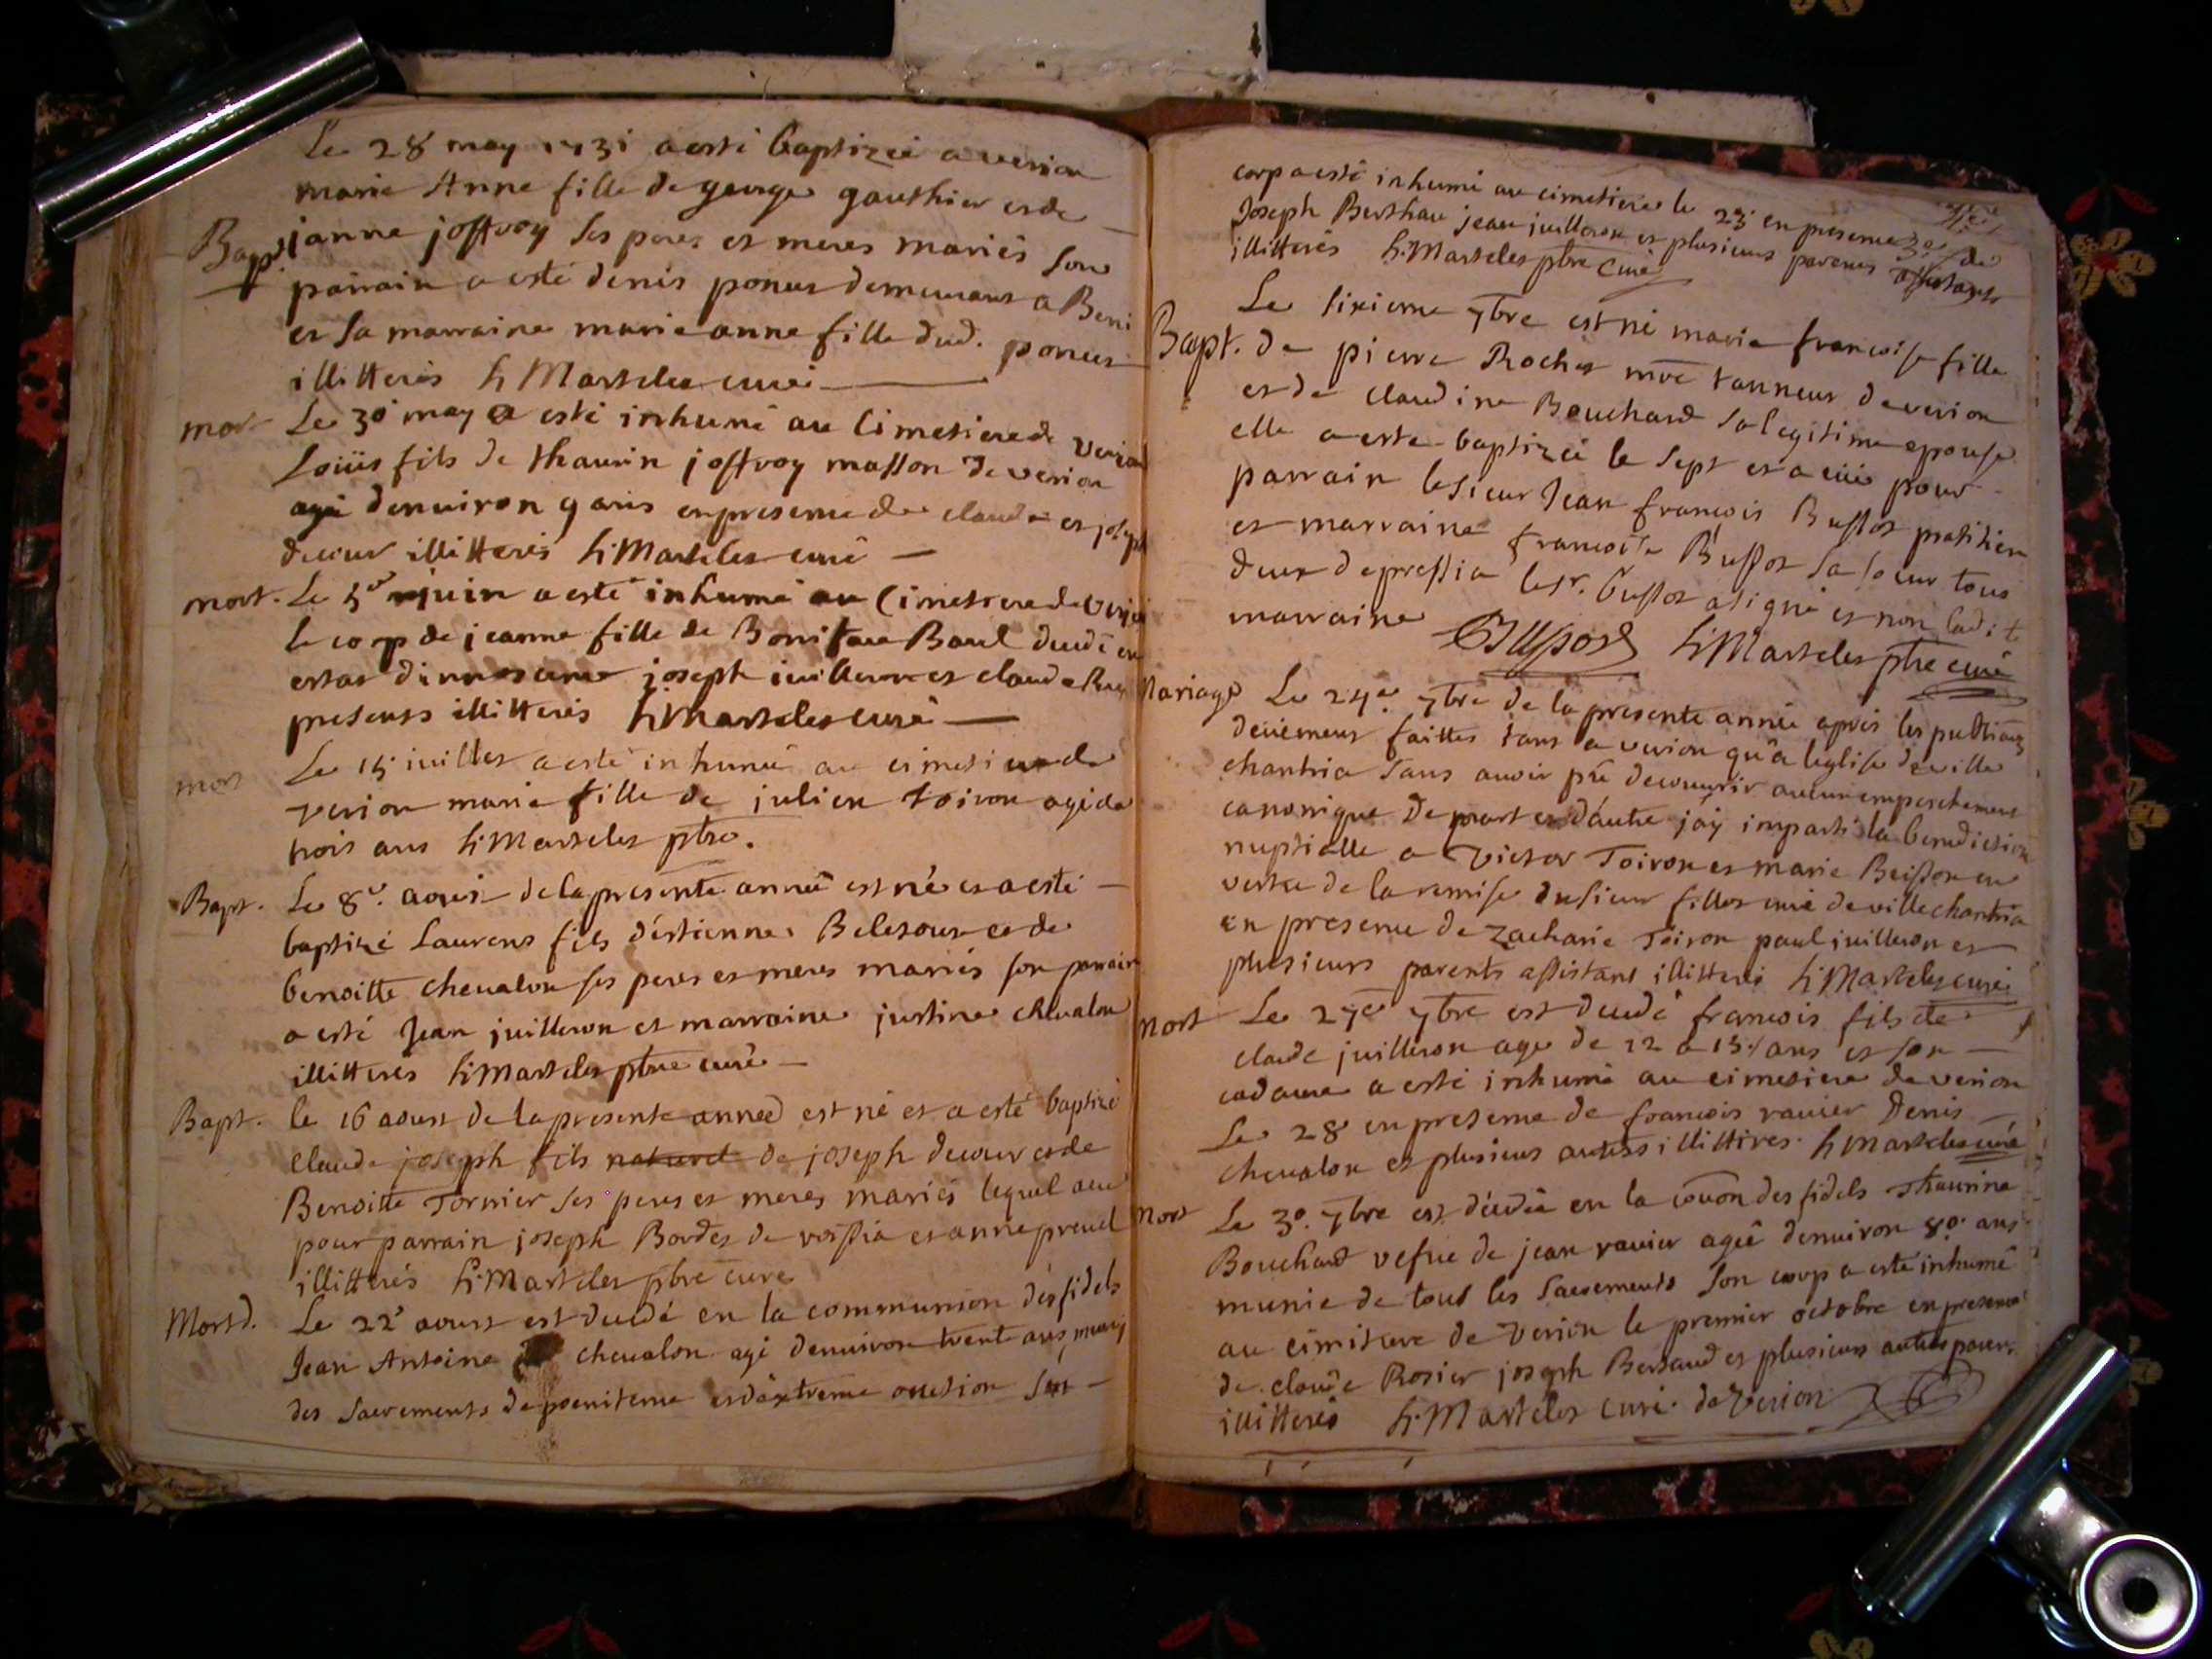 Le 28 may 1731 a esté baptizeé a verion
marie Anne fille de george gauthier et de
Bapt. janne joffroy ses peres et meres mariés son
parrain a esté denis ponus demeurant a Beni
et sa marraine marie anne fille dud. ponus
illitterés h Marteles curé
mort Le 30 may a esté inhumé au Cimetiere de verion
Loüis fils de thaurin joffroy masson de verion
agé denuiron 9 ans en presence de claude et joseph
decour illitterés h Marteles curé
mort. Le 5e juin a esté inhumé au Cimetiere de verion
le corp de jeanne fille de Boniface Baul decedé en
estat dinnocence joseph iuilleron et claude
presents illitterés h Marteles curé
mort Le 15 iuillet a esté inhumé au cimetiere de
verion marie fille de julien toiron agé de
trois ans h Marteles ptre.
Bapt. Le 8e. aoust de la presente année est né et a esté
baptizé Laurens fils d'estienne Beletour et de
benoitte cheualon ses peres et meres mariés son parrain
a esté Jean juilleron et marraine justine cheualon
illitterés h Marteles ptre curé
Bapt. le 16 aoust de la presente année est né et a esté baptizé
claude joseph fils naturel de joseph decour et de
Benoitte Tornier ses peres et meres mariés lequel a eu
pour parrain joseph Bordes de rossia et anne preuel
illitterés h Marteles ptre curé
Mort d. Le 22e aoust est decedé en la communion des fidels
Jean Antoine cheualon agé denuiron trent ans, muny
des sacrements de poenitence et d'extreme onction son
corp a esté inhumé au cimetiere le 23e en presence de
Joseph Berthau jean juilleron et plusieurs parents assistants
illitterés h. Marteles ptre curé
Le sixieme 7bre est né marie francoise fille
Bapt. de pierre Rochet mre tanneur de verion
et de claudine Bouchard sa legitime epouse
elle a este baptizeé le sept et a eüe pour
parrain le sieur Jean francois Bussot pratitien
et marraine francoise Bussot sa soeur tous
deux de pressia le sr. bussot a signé et non ladit
marraine Bussot h Marteles ptre curé
Mariage Le 24e. 7bre de la presente année apres les publications
deüement faittes tant a verion qu'a leglise de ville
chantria sans auoir pû decouurir aucun empeschement
canonique de part et d'autre jay imparti la benediction
nuptialle a victor Toiron et marie Beisson en
vertu de la remise du sieur fillot curé de villechantria
en presence de zacharie Toiron paul juilleron et
plusieurs parents assistant illitterés h Marteles curé
Mort Le 27e 7bre est decedé francois fils de
claude juilleron agé de 12 a 15 ans et son
cadavre a esté inhumé au cimetiere de verion
Le 28 en presence de francois rauier denis
cheualon et plusieurs autres illitterés. h Marteles curé
Mort Le 30. 7bre est decedée en la couon des fidels Thaurine
Bouchard vefue de jean rauier agée denuiron 80. ans
munie de tous les sacrements son corp a esté inhumé
au cimitiere de verion le premier octobre en presence
de claude Rosier joseph Bertaud et plusieurs autres parens
illitterés h. Marteles curé de verion